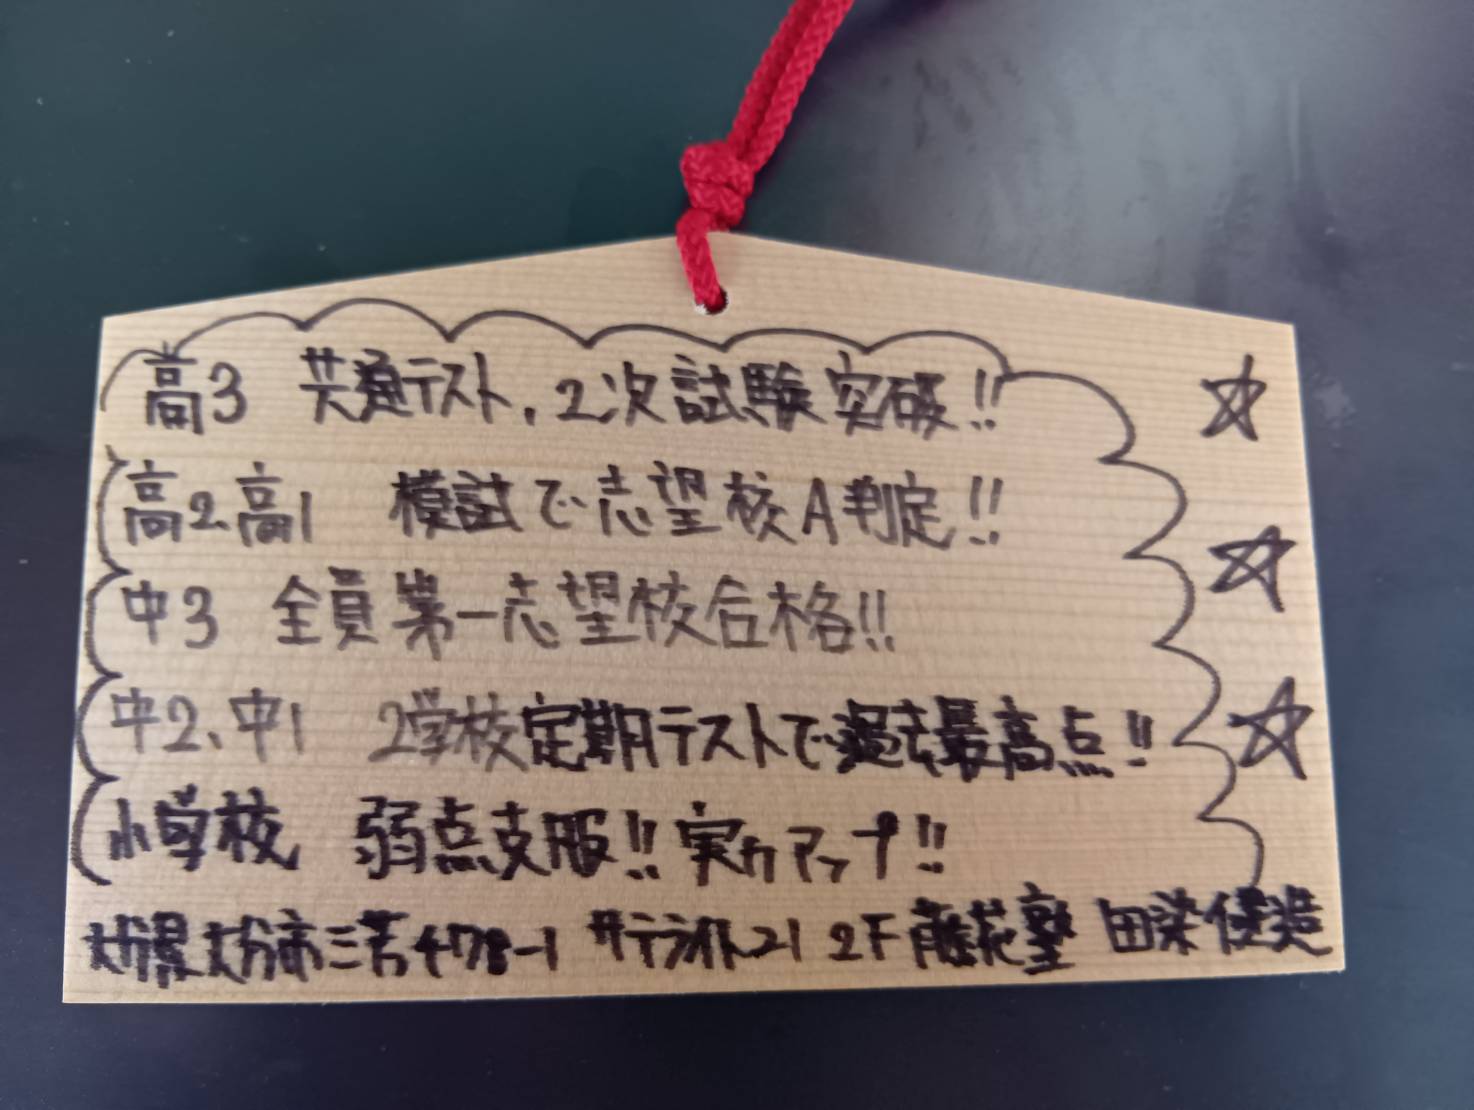 高3 共通テスト、2次試験突破!!
高2、高1 模試で志望校A判定!!
中3 全員第一志望校合格!!
中2、中1 2学校定期テストで過去最高点!!
小学校 弱点克服!!実力アップ!!
大分県大分市三芳478-1 サテライト21 2F 藤花塾 田染